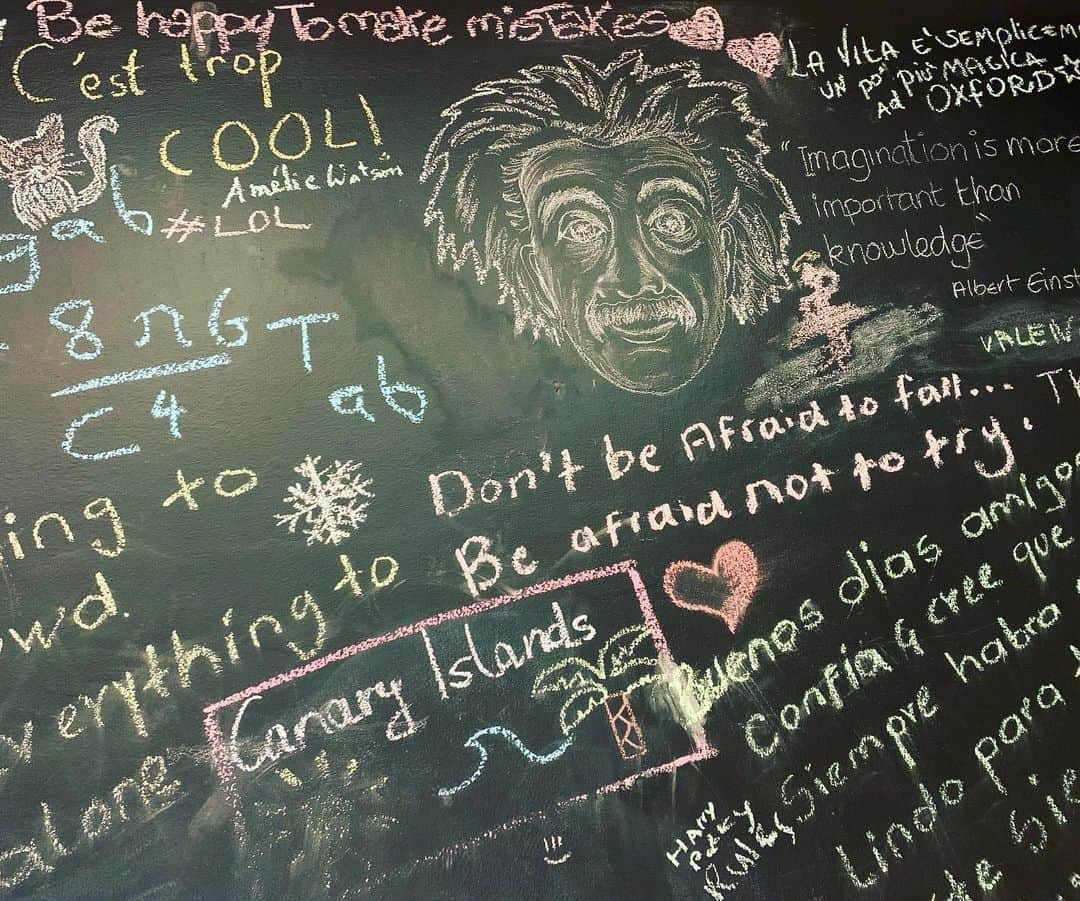 Be happy To make misTakes
C'est trop
COOL!
Amélie Watson
#LOL
LA VITA E' SEMPLICEM
UN PO' PIÙ MAGICA
AD OXFORD
"Imagination is more
important than
knowledge"
Albert Einst
VALEN
g ab
8πG T
C4 ab
Don't be Afraid to fall... Th
Be afraid not to try.
ing to
wd.
verything to
alone
Canary Islands
Buenos dias amigo
Confia y cree que
Siempre habrá
lindo para
de Sie
HARY